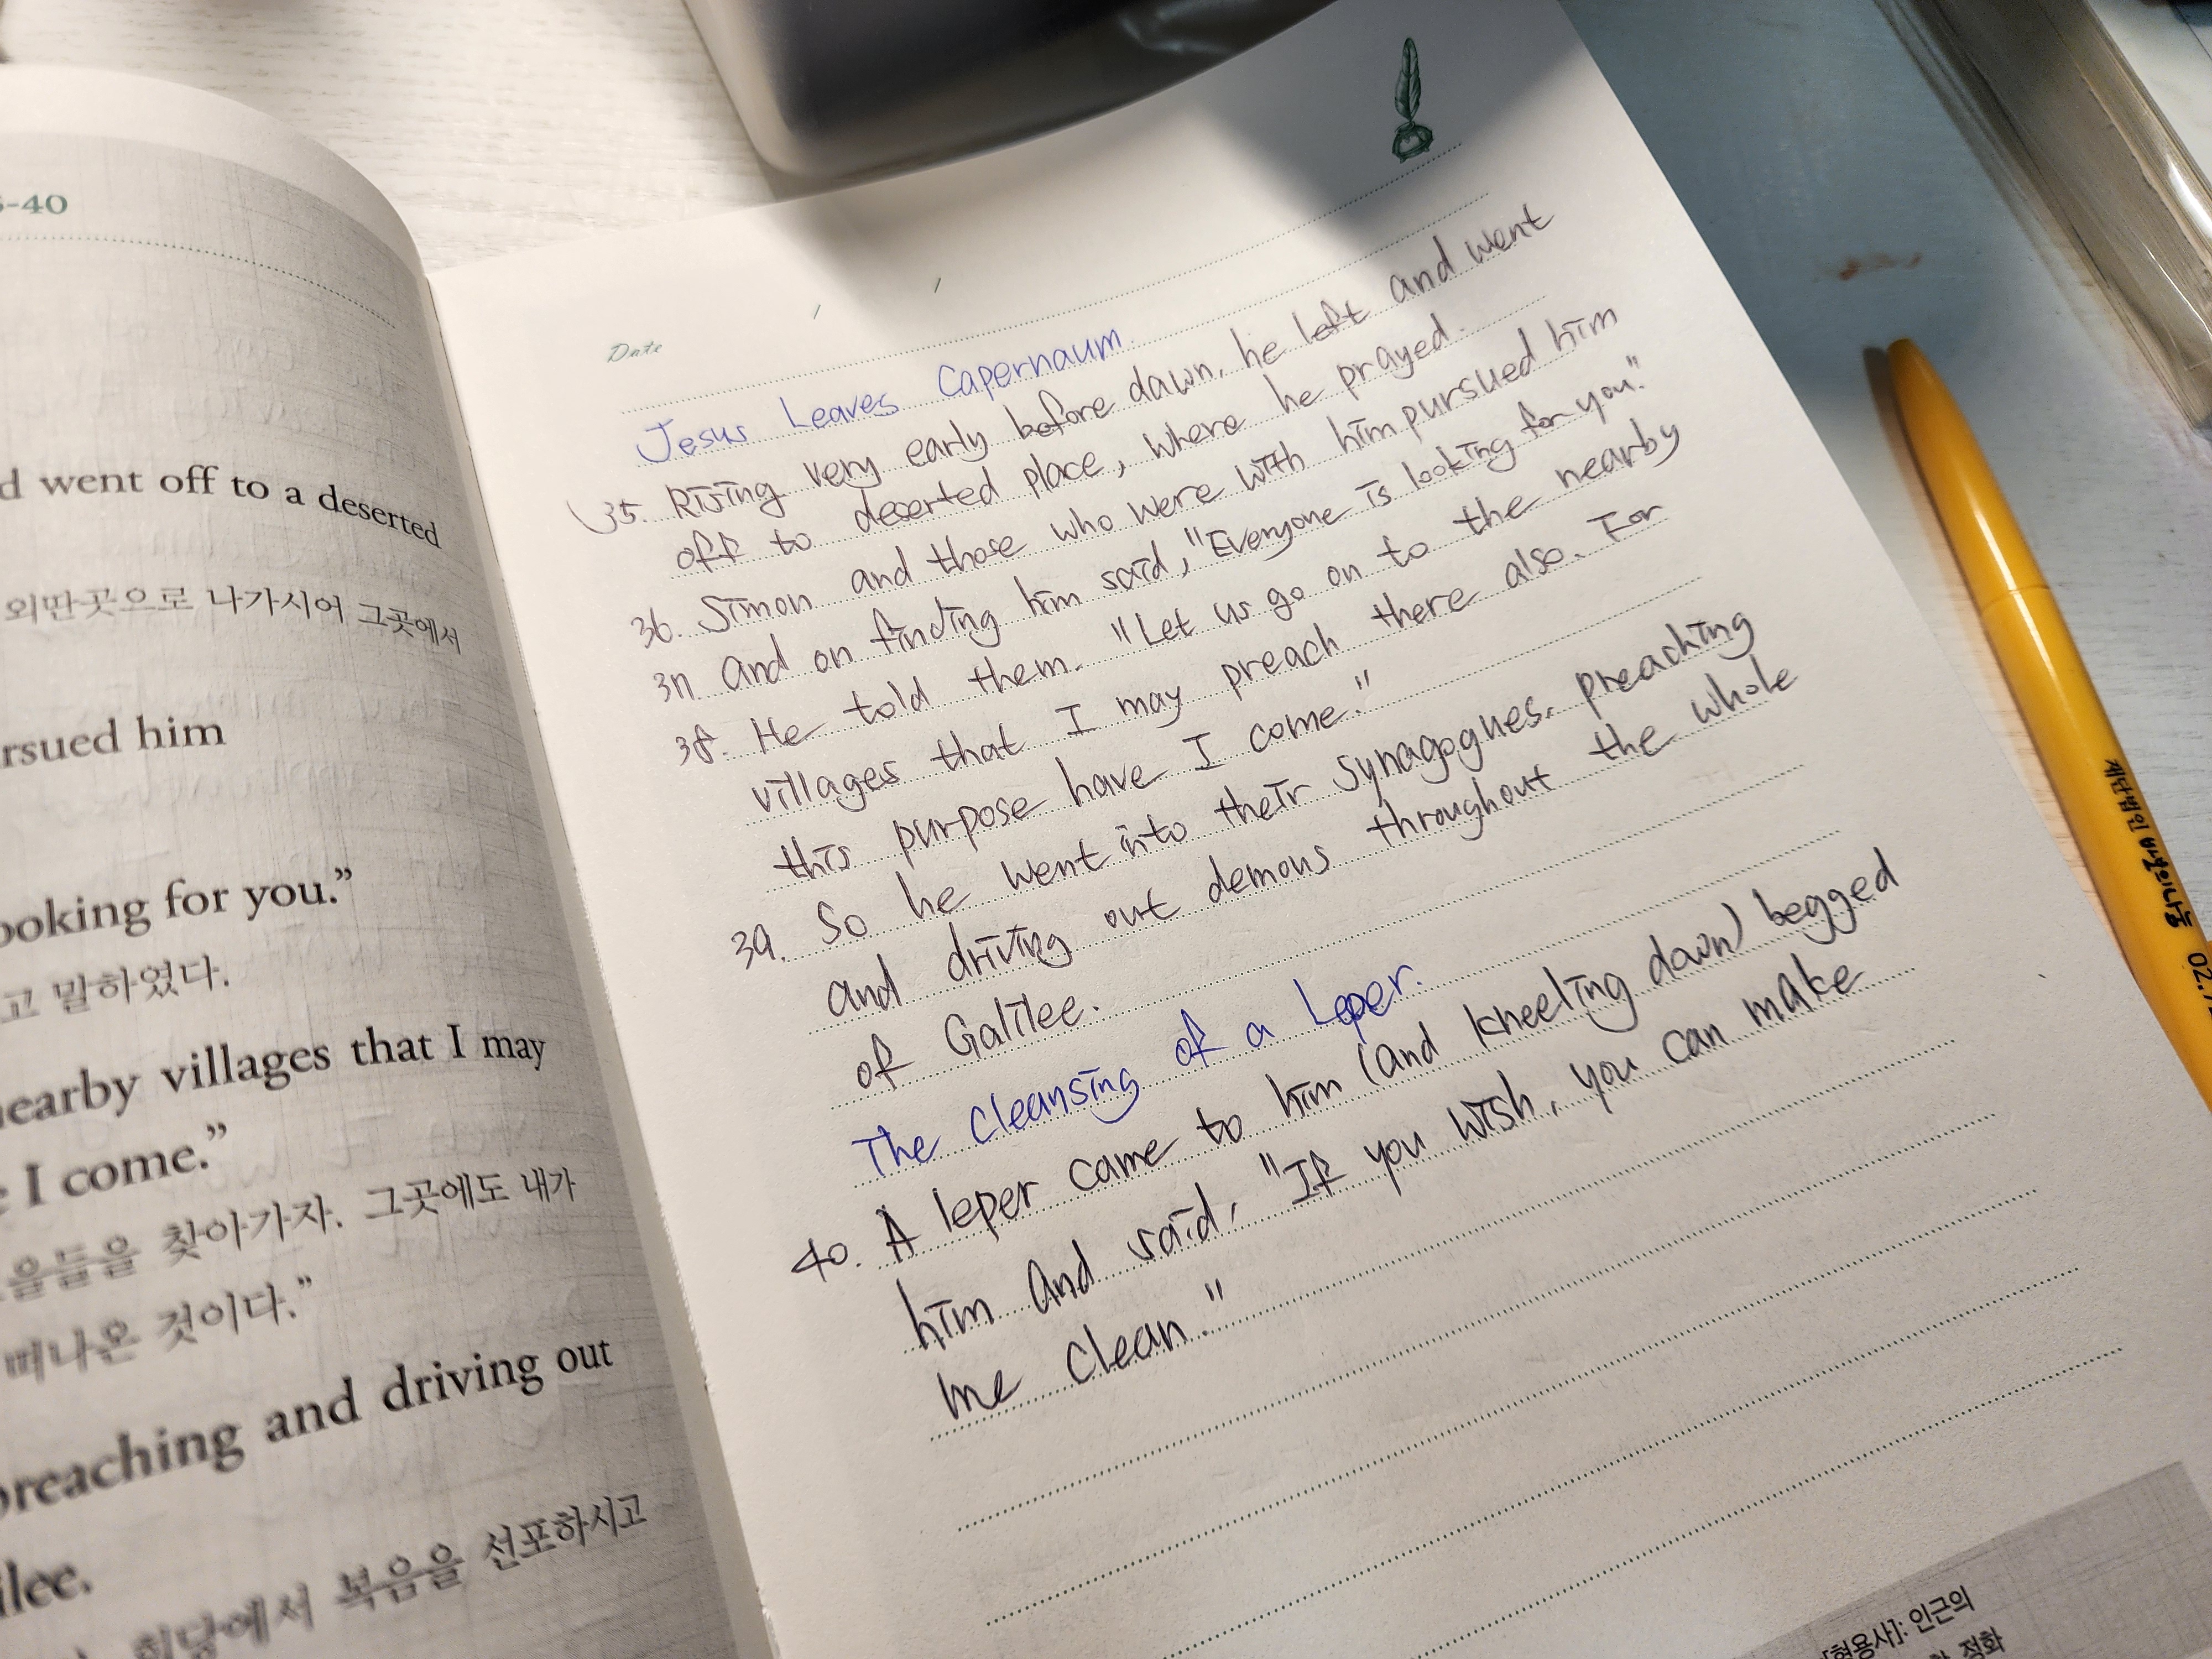 -40
d went off to a deserted
외딴곳으로 나가시어 그곳에서
rsued him
ooking for you.”
고 말하였다.
nearby villages that I may
I come.”
을들을 찾아가자. 그곳에도 내가
떠나온 것이다.”
preaching and driving out
ilee.
회당에서 복음을 선포하시고
Date
Jesus Leaves Capernaum.
35. Rising very early before dawn, he left and went
off to deserted place, where he prayed.
36. Simon and those who were with him pursued him
37. and on finding him said, "Everyone is looking for you."
38. He told them. "Let us go on to the nearby
villages that I may preach there also. For
this purpose have I come."
39. So he went into their synagogues, preaching
and driving out demons throughout the whole
of Galilee.
The Cleansing of a Leper.
40. A leper came to him (and kneeling down) begged
him and said, "If you wish, you can make
me clean."
[형용사]: 인근의
정화
02.